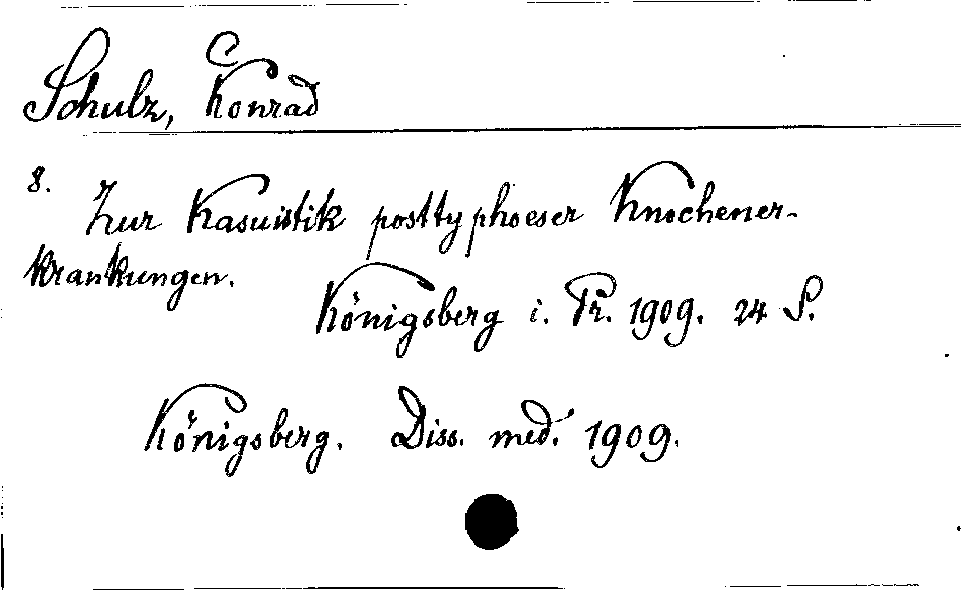 Schulz, Konrad
8. Zur Kasuistik posttyphoeser Knochener-
krankungen.
Königsberg i. Pr. 1909. 24 S.
Königsberg. Diss. med. 1909.